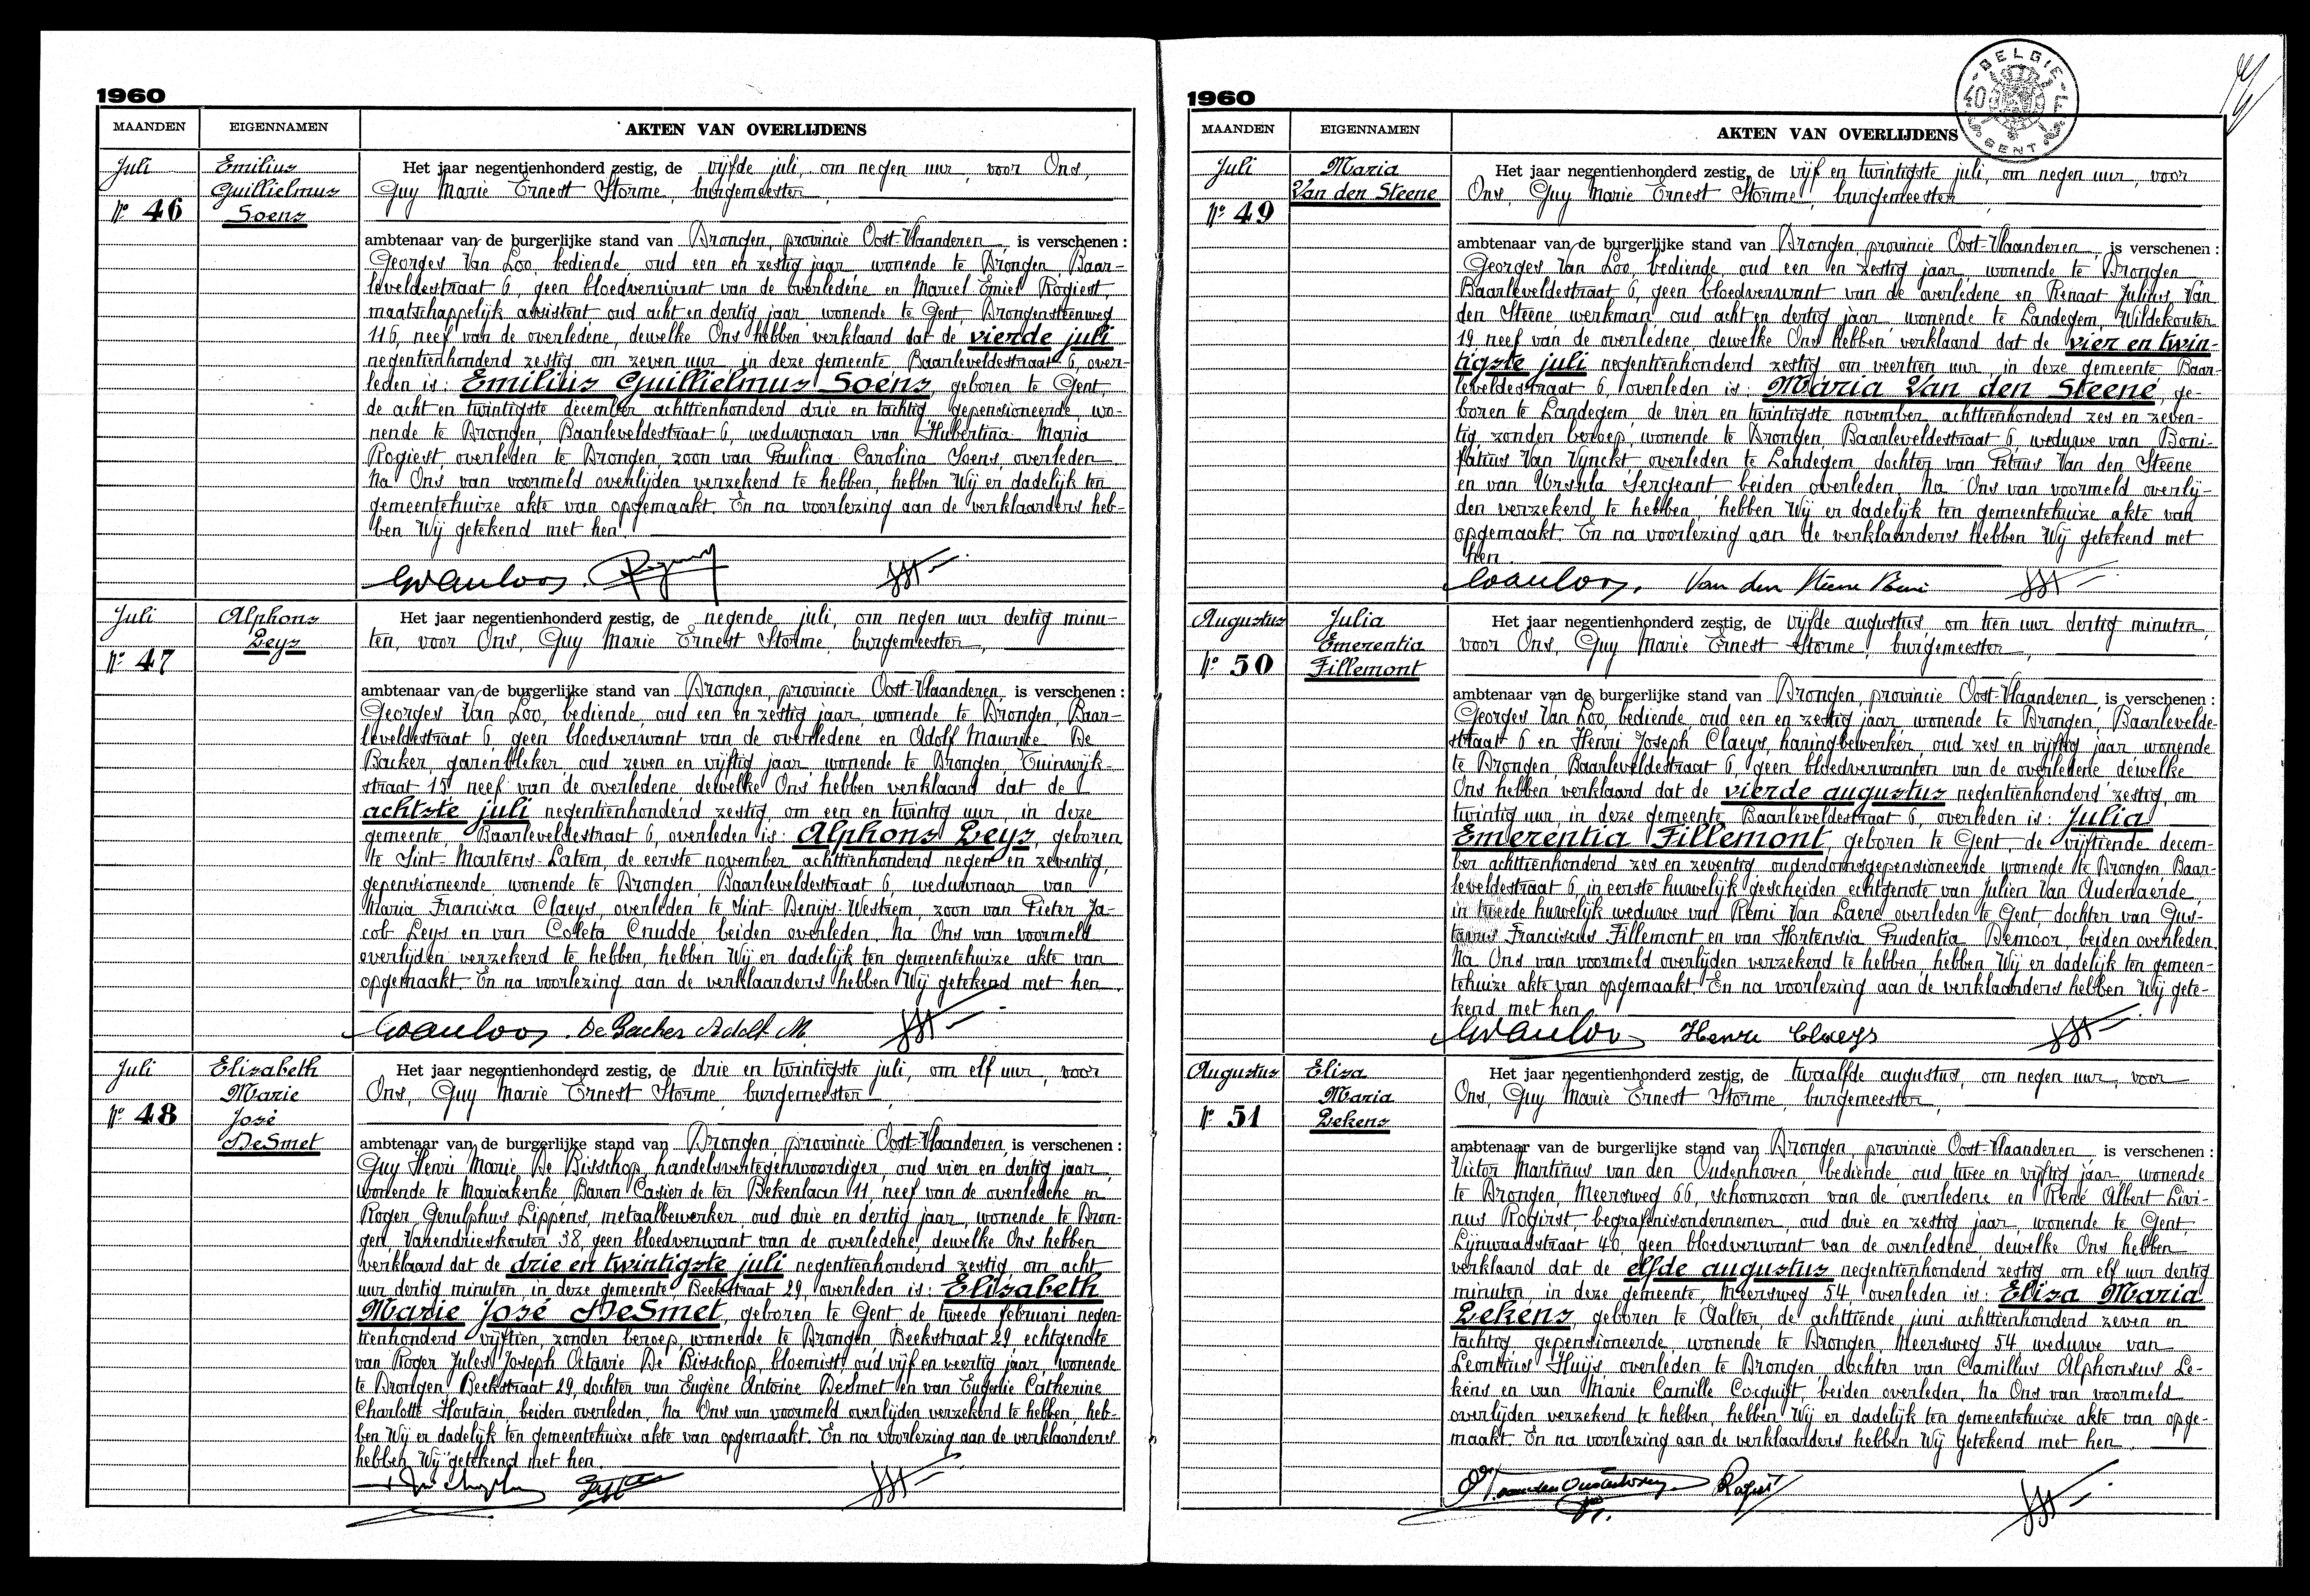 1960
MAANDEN
EIGENNAMEN
AKTEN VAN OVERLIJDENS
Juli
Nº 46
Emilius
Guillielmus
Soens
Het jaar negentienhonderd zestig, de vijfde juli, om negen uur, voor Ons,
Guy Marie Ernest Storme, burgemeester,
ambtenaar van de burgerlijke stand van Drongen, provincie Oost-Vlaanderen, is verschenen:
Georges Van Loo, bediende, oud een en zestig jaar, wonende te Drongen, Baar-
leveldestraat 6, geen bloedverwant van de overledene en Marcel Emiel Rogiest,
maatschappelijk assistent oud acht en dertig jaar, wonende te Gent, Drongensteenweg
116, neef van de overledene, dewelke Ons hebben verklaard dat de vierde juli
negentienhonderd zestig om zeven uur, in deze gemeente Baarleveldestraat 6, over-
leden is: Emilius Guillielmus Soens, geboren te Gent,
de acht en twintigste december achttienhonderd drie en tachtig, gepensioneerde, wo-
nende te Drongen, Baarleveldestraat 6, weduwnaar van Hubertina Maria
Rogiest, overleden te Drongen, zoon van Paulina Carolina Soens, overleden
Na Ons van voormeld overlijden verzekerd te hebben, hebben Wij er dadelijk ten
gemeentehuize akte van opgemaakt. En na voorlezing aan de verklaarders heb-
ben Wij getekend met hen.
GVanloo.
Juli
Nº 47
Alphons
Leys
Het jaar negentienhonderd zestig, de negende juli, om negen uur dertig minu-
ten, voor Ons, Guy Marie Ernest Storme, burgemeester,
ambtenaar van de burgerlijke stand van Drongen, provincie Oost-Vlaanderen, is verschenen:
Georges Van Loo, bediende, oud een en zestig jaar, wonende te Drongen, Baar-
leveldestraat 6, geen bloedverwant van de overledene en Adolf Maurice De
Backer, garenbleker, oud zeven en vijftig jaar, wonende te Drongen, Tuinwijk-
straat 15, neef van de overledene dewelke Ons hebben verklaard dat de
achtste juli negentienhonderd zestig, om een en twintig uur, in deze
gemeente, Baarleveldestraat 6, overleden is: Alphons Leys, geboren
te Sint-Martens-Latem, de eerste november achttienhonderd negen en zeventig,
gepensioneerde, wonende te Drongen, Baarleveldestraat 6, weduwnaar van
Maria Francisca Claeys, overleden te Sint-Denijs-Westrem, zoon van Pieter Ja-
cob Leys en van Coleta Crudde, beiden overleden. Na Ons van voormeld
overlijden verzekerd te hebben, hebben Wij er dadelijk ten gemeentehuize akte van
opgemaakt. En na voorlezing aan de verklaarders hebben Wij getekend met hen.
GVanloo. De Backer Adolf M.
Juli
Nº 48
Elisabeth
Marie
José
DeSmet
Het jaar negentienhonderd zestig, de drie en twintigste juli, om elf uur, voor
Ons, Guy Marie Ernest Storme, burgemeester,
ambtenaar van de burgerlijke stand van Drongen, provincie Oost-Vlaanderen, is verschenen:
Guy Henri Marie De Bisschop, handelsvertegenwoordiger, oud vier en dertig jaar,
wonende te Mariakerke, Baron Casier de ter Bekenlaan 11, neef van de overledene en
Roger Gerulphus Lippens, metaalbewerker, oud drie en dertig jaar, wonende te Dron-
gen, Varendrieskouter 38, geen bloedverwant van de overledene, dewelke Ons hebben
verklaard dat de drie en twintigste juli negentienhonderd zestig om acht
uur dertig minuten, in deze gemeente Beekstraat 29, overleden is: Elisabeth
Marie José DeSmet, geboren te Gent, de tweede februari negen-
tienhonderd vijftien, zonder beroep, wonende te Drongen, Beekstraat 29, echtgenote
van Roger Jules Joseph Octavie De Bisschop, bloemist, oud vijf en veertig jaar, wonende
te Drongen, Beekstraat 29, dochter van Eugène Antoine DeSmet en van Eugenie Catherine
Charlotte Houtain, beiden overleden. Na Ons van voormeld overlijden verzekerd te hebben, heb-
ben Wij er dadelijk ten gemeentehuize akte van opgemaakt. En na voorlezing aan de verklaarders
hebben Wij getekend met hen.
1960
BELGIE
40 F
GENT
MAANDEN
EIGENNAMEN
AKTEN VAN OVERLIJDENS
Juli
Nº 49
Maria
Van den Steene
Het jaar negentienhonderd zestig, de vijf en twintigste juli, om negen uur, voor
Ons, Guy Marie Ernest Storme, burgemeester,
ambtenaar van de burgerlijke stand van Drongen, provincie Oost-Vlaanderen, is verschenen:
Georges Van Loo, bediende, oud een en zestig jaar, wonende te Drongen,
Baarleveldestraat 6, geen bloedverwant van de overledene en Renaat Julius Van
den Steene, werkman, oud acht en dertig jaar, wonende te Landegem, Wildekouter
19, neef van de overledene, dewelke Ons hebben verklaard dat de vier en twin-
tigste juli negentienhonderd zestig om veertien uur, in deze gemeente Baar-
leveldestraat 6, overleden is: Maria Van den Steene, ge-
boren te Landegem, de vier en twintigste november achttienhonderd zes en zeven-
tig, zonder beroep, wonende te Drongen, Baarleveldestraat 6, weduwe van Boni-
fatius Van Vynckt, overleden te Landegem, dochter van Petrus Van den Steene
en van Ursula Sergeant, beiden overleden. Na Ons van voormeld overlij-
den verzekerd te hebben, hebben Wij er dadelijk ten gemeentehuize akte van
opgemaakt. En na voorlezing aan de verklaarders hebben Wij getekend met
hen.
GVanloo. Van den Steene
Augustus
Nº 50
Julia
Emerentia
Fillemont
Het jaar negentienhonderd zestig, de vijfde augustus, om tien uur dertig minuten,
voor Ons, Guy Marie Ernest Storme, burgemeester,
ambtenaar van de burgerlijke stand van Drongen, provincie Oost-Vlaanderen, is verschenen:
Georges Van Loo, bediende, oud een en zestig jaar, wonende te Drongen, Baarlevelde-
straat 6 en Henri Joseph Claeys, haringbewerker, oud zes en vijftig jaar, wonende
te Drongen, Baarleveldestraat 6, geen bloedverwanten van de overledene dewelke
Ons hebben verklaard dat de vierde augustus negentienhonderd zestig, om
twintig uur, in deze gemeente Baarleveldestraat 6, overleden is: Julia
Emerentia Fillemont, geboren te Gent, de vijftiende decem-
ber achttienhonderd zes en zeventig, ouderdomsgepensioneerde, wonende te Drongen, Baar-
leveldestraat 6, in eerste huwelijk gescheiden echtgenote van Julien Van Audenaerde,
in tweede huwelijk weduwe van Remi Van Laere, overleden te Gent, dochter van Gus-
tavus Franciscus Fillemont en van Hortensia Prudentia Demoor, beiden overleden.
Na Ons van voormeld overlijden verzekerd te hebben, hebben Wij er dadelijk ten gemeen-
tehuize akte van opgemaakt. En na voorlezing aan de verklaarders hebben Wij gete-
kend met hen.
GVanloo Henri Claeys
Augustus
Nº 51
Eliza
Maria
Lekens
Het jaar negentienhonderd zestig, de twaalfde augustus, om negen uur, voor
Ons, Guy Marie Ernest Storme, burgemeester,
ambtenaar van de burgerlijke stand van Drongen, provincie Oost-Vlaanderen, is verschenen:
Victor Martinus van den Oudenhoven, bediende, oud twee en vijftig jaar, wonende
te Drongen, Meersweg 66, schoonzoon van de overledene en René Albert Livi-
nus Rogirst, begrafenisondernemer, oud drie en zestig jaar, wonende te Gent,
Lijnwaadstraat 40, geen bloedverwant van de overledene, dewelke Ons hebben
verklaard dat de elfde augustus negentienhonderd zestig om elf uur dertig
minuten, in deze gemeente, Meersweg 54, overleden is: Eliza Maria
Lekens, geboren te Aalter, de achttiende juni achttienhonderd zeven en
tachtig, gepensioneerde, wonende te Drongen, Meersweg 54, weduwe van
Leontius Huijs, overleden te Drongen, dochter van Camillus Alphonsus Le-
kens en van Marie Camille Cocquijt, beiden overleden. Na Ons van voormeld
overlijden verzekerd te hebben, hebben Wij er dadelijk ten gemeentehuize akte van opge-
maakt. En na voorlezing aan de verklaarders hebben Wij getekend met hen.